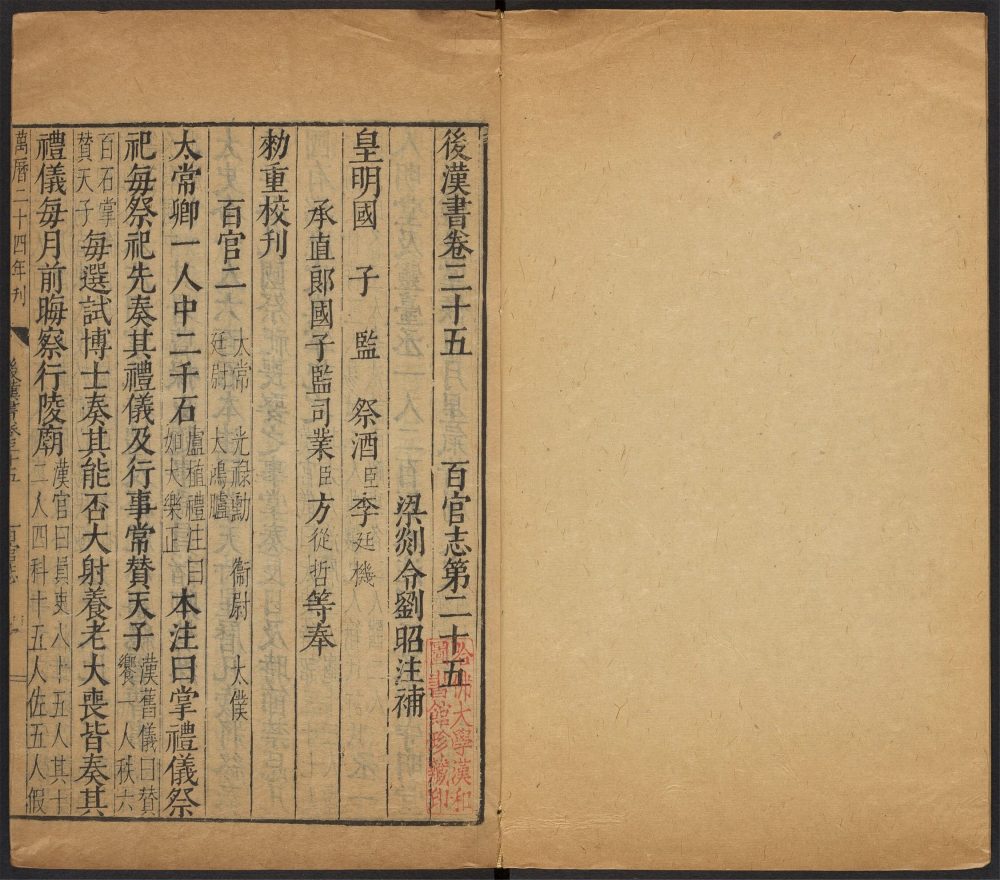 後漢書卷三十五 百官志第二十五
梁剡令劉昭注補
皇明國子監祭酒臣李廷機
承直郎國子監司業臣方從哲等奉
勑重校刊
百官二 太常 光祿勳 衞尉 太僕
廷尉 大鴻臚
太常卿一人中二千石盧植禮注曰如大樂正本注曰掌禮儀祭
祀每祭祀先奏其禮儀及行事常贊天子漢舊儀曰贊饗一人秩六
百石掌贊天子每選試博士奏其能否大射養老大喪皆奏其
禮儀每月前晦察行陵廟漢官曰員吏八十五人其十二人四科十五人佐五人假
萬曆二十四年刊
後漢書卷三十五 百官志 一
哈佛大學漢和
圖書館珍藏印